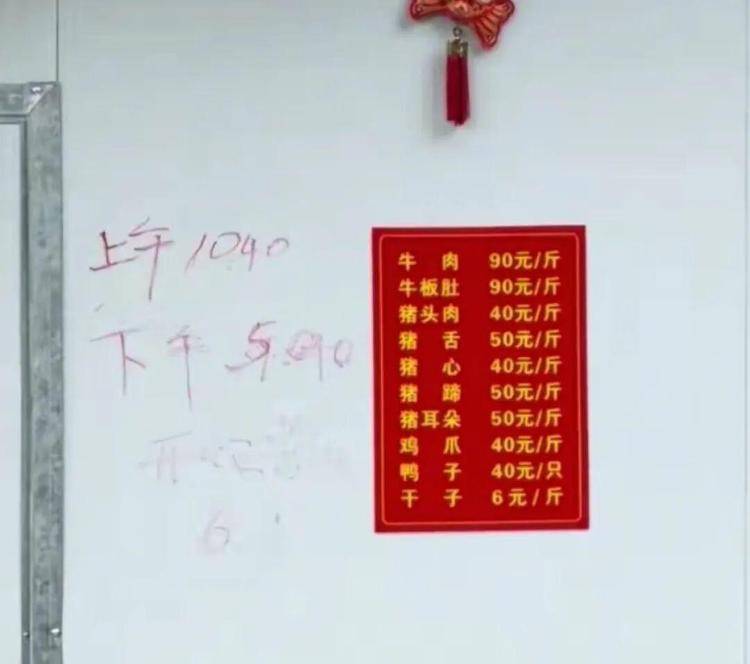 上午 1040
下午
牛肉 90元/斤
牛板肚 90元/斤
猪头肉 40元/斤
猪舌 50元/斤
猪心 40元/斤
猪蹄 50元/斤
猪耳朵 50元/斤
鸡爪 40元/斤
鸭子 40元/只
干子 6元/斤